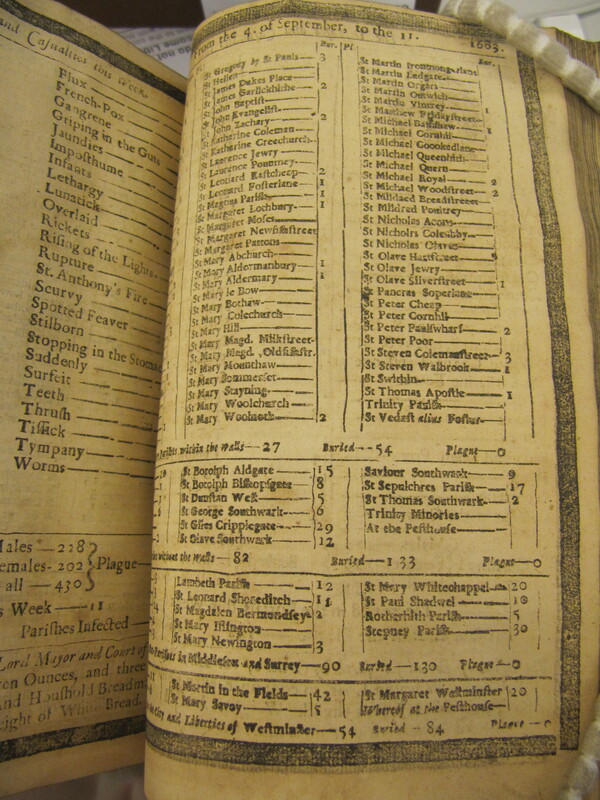 and Casualties this Week.
Flux
French-Pox
Gangrene
Griping in the Guts
Jaundies
Imposthume
Infants
Lethargy
Lunatick
Overlaid
Rickets
Rising of the Lights
Rupture
St. Anthony's Fire
Scurvy
Spotted Feaver
Stilborn
Stopping in the Stomac
Suddenly
Surfeit
Teeth
Thrush
Tissick
Tympany
Worms
Males — 228
emales- 202 Plague
all — 430
s Week — 11
Parishes Infected
Lord Mayor and Court of
en Ounces, and three
and Houshold Bread
eight of White Bread.
From the 4. of September, to the 11. 1683.
Bur. Pl
St Gregory by St Pauls 3
St Hellen
St James Dukes Place
St James Garlickhithe 2
St John Baptist
St John Evangelist
St John Zachary 2
St Katharine Coleman
St Katharine Creechurch
St Laurence Jewry
St Laurence Pountney
St Leonard Eastcheap 2
St Leonard Fosterlane 1
St Magnus Parish 1
St Margaret Lothbury 1
St Margaret Moses
St Margaret Newfishstreet
St Margaret Pattons
St Mary Abchurch
St Mary Aldermanbury 1
St Mary Aldermary 1
St Mary le Bow
St Mary Bothaw
St Mary Colechurch
St Mary Hill
St Mary Magd. Milkstreet
St Mary Magd. Oldfishstr.
St Mary Mounthaw
St Mary Sommerset
St Mary Stayning
St Mary Woolchurch
St Mary Woolnoth 2
Bur.
St Martin Ironmongerlane
St Martin Ludgate
St Martin Orgars
St Martin Outwich
St Martin Vintrey 1
St Matthew Fridaystreet
St Michael Bassishaw 1
St Michael Cornhil
St Michael Crookedlane
St Michael Queenhith
St Michael Quern
St Michael Royal 2
St Michael Woodstreet 2
St Mildred Breadstreet
St Mildred Poultrey
St Nicholas Acons
St Nicholas Coleabby
St Nicholas Olaves
St Olave Hartstreet
St Olave Jewry
St Olave Silverstreet 1
St Pancras Soperlane
St Peter Cheap
St Peter Cornhil
St Peter Paulswharf 2
St Peter Poor
St Steven Colemanstreet 3
St Steven Walbrook 1
St Swithin
St Thomas Apostle 1
Trinity Parish
St Vedast alias Foster
Parishes within the Walls — 27 Buried — 54 Plague — 0
St Botolph Aldgate 15
St Botolph Bishopsgate 8
St Dunstan West 5
St George Southwark 6
St Giles Cripplegate 29
St Olave Southwark 12
Saviour Southwark 9
St Sepulchres Parish 17
St Thomas Southwark 2
Trinity Minories
At the Pesthouse
without the Walls — 82 Buried — 133 Plague — 0
Lambeth Parish 12
St Leonard Shoreditch 11
St Magdalen Bermondsey
St Mary Islington
St Mary Newington 3
St Mary Whitechappel 20
St Paul Shadwel 10
Rotherhith Parish 5
Stepney Parish 30
Parishes in Middlesex and Surrey — 90 Buried — 130 Plague — 0
St Martin in the Fields 42
St Mary Savoy 5
St Margaret Westminster 20
Whereof at the Pesthouse
City and Liberties of Westminster — 54 Buried — 84 Plague — 0